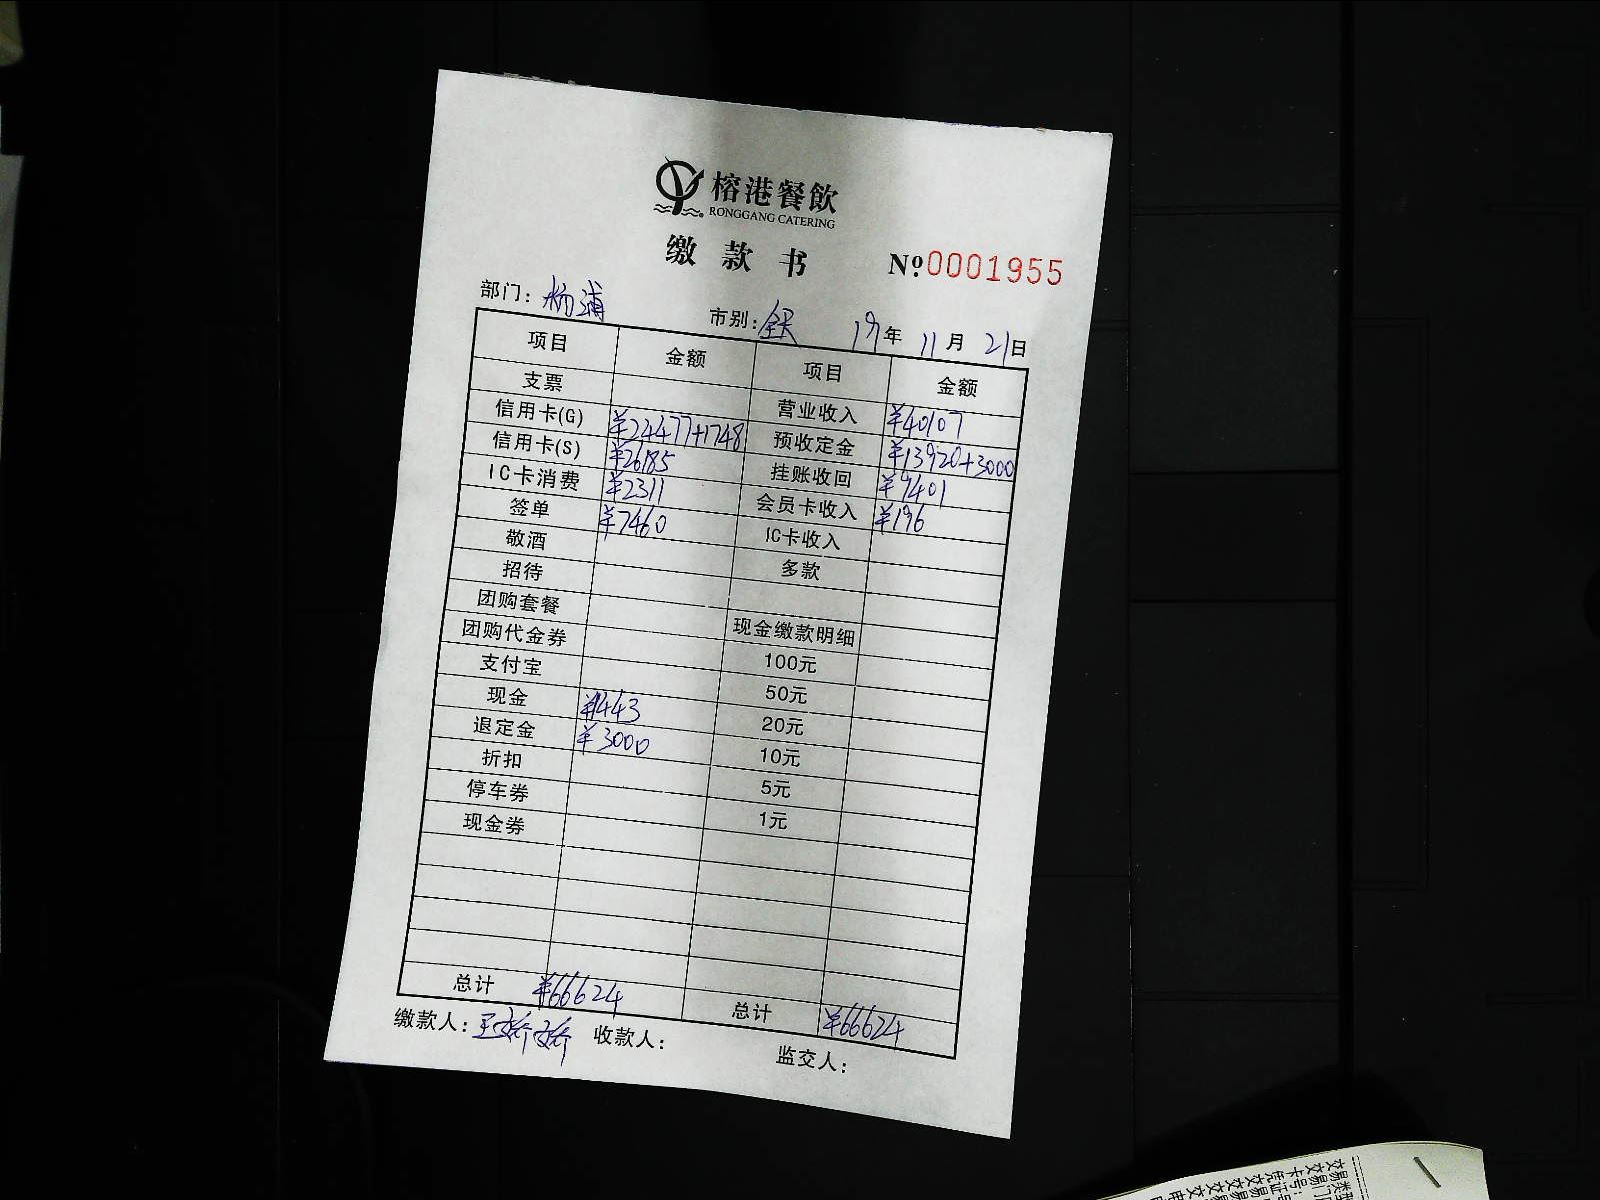 榕港餐飲
RONGGANG CATERING
缴款书 Nº0001955
部门：杨浦 市别：全天 19年 11月 21日
项目 金额 项目 金额
支票 营业收入 ¥40107
信用卡(G) ¥24477+1748 预收定金 ¥13920+3000
信用卡(S) ¥26185 挂账收回 ¥9401
IC卡消费 ¥2311 会员卡收入 ¥196
签单 ¥7460 IC卡收入
敬酒 多款
招待
团购套餐 现金缴款明细
团购代金券 100元
支付宝 50元
现金 ¥1443 20元
退定金 ¥3000 10元
折扣 5元
停车券 1元
现金券
总计 ¥66624 总计 ¥66624
缴款人：王娇娇 收款人： 监交人：